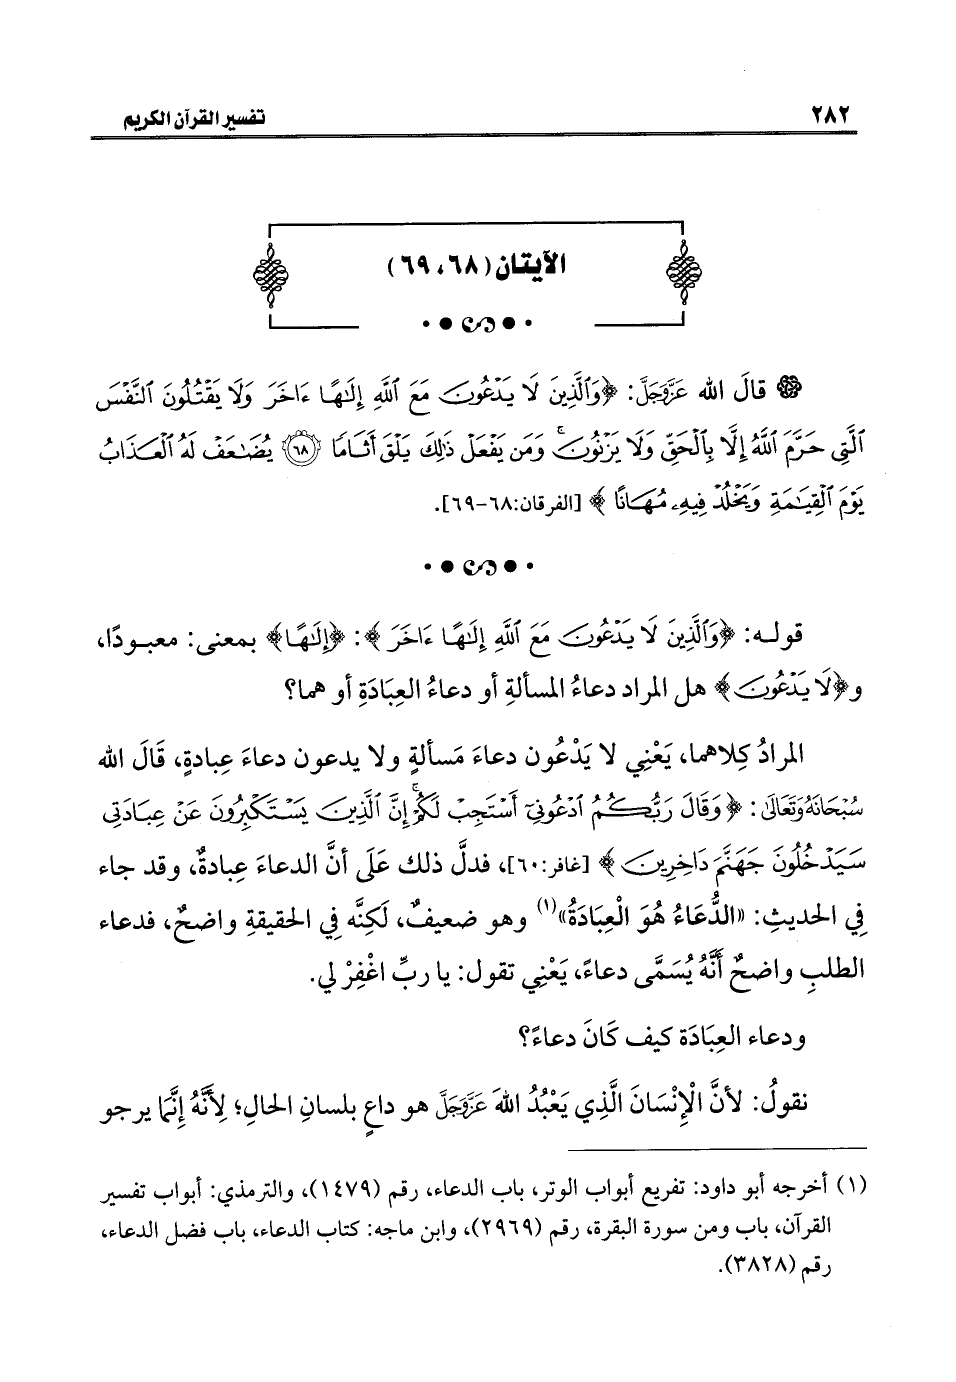 ٢٨٢
تفسير القرآن الكريم
الآيتان (٦٨، ٦٩)
قالَ الله عَزَّوَجَلَّ: ﴿وَٱلَّذِينَ لَا يَدْعُونَ مَعَ ٱللَّهِ إِلَٰهًا ءَاخَرَ وَلَا يَقْتُلُونَ ٱلنَّفْسَ
ٱلَّتِي حَرَّمَ ٱللَّهُ إِلَّا بِٱلْحَقِّ وَلَا يَزْنُونَ ۚ وَمَن يَفْعَلْ ذَٰلِكَ يَلْقَ أَثَامًا ﴿٦٨﴾ يُضَٰعَفْ لَهُ ٱلْعَذَابُ
يَوْمَ ٱلْقِيَٰمَةِ وَيَخْلُدْ فِيهِۦ مُهَانًا﴾ [الفرقان:٦٨-٦٩].
قوله: ﴿وَٱلَّذِينَ لَا يَدْعُونَ مَعَ ٱللَّهِ إِلَٰهًا ءَاخَرَ﴾: ﴿إِلَٰهًا﴾ بمعنى: معبودًا،
و﴿لَا يَدْعُونَ﴾ هل المراد دعاءُ المسألةِ أو دعاءُ العِبَادَةِ أو هما؟
المرادُ كِلاهما، يَعْنِي لا يَدْعُون دعاءَ مَسألةٍ ولا يدعون دعاءَ عِبادةٍ، قَالَ الله
سُبْحَانَهُ وَتَعَالَىٰ: ﴿وَقَالَ رَبُّكُمُ ٱدْعُونِيٓ أَسْتَجِبْ لَكُمْ ۚ إِنَّ ٱلَّذِينَ يَسْتَكْبِرُونَ عَنْ عِبَادَتِي
سَيَدْخُلُونَ جَهَنَّمَ دَاخِرِينَ﴾ [غافر:٦٠]، فدلَّ ذلك عَلَى أنَّ الدعاءَ عِبادةٌ، وقد جاء
فِي الحديثِ: «الدُّعَاءُ هُوَ الْعِبَادَةُ»(١) وهو ضعيفٌ، لَكِنَّه فِي الحقيقةِ واضحٌ، فدعاء
الطلبِ واضحٌ أَنَّهُ يُسَمَّى دعاءً، يَعْنِي تقول: يا ربِّ اغْفِرْ لي.
ودعاء العِبَادَة كيف كَانَ دعاءً؟
نقولُ: لأنَّ الْإِنْسَانَ الَّذِي يَعْبُدُ اللهَ عَزَّوَجَلَّ هو داعٍ بلسانِ الحالِ؛ لِأَنَّهُ إِنَّمَا يرجو
(١) أخرجه أبو داود: تفريع أبواب الوتر، باب الدعاء، رقم (١٤٧٩)، والترمذي: أبواب تفسير
القرآن، باب ومن سورة البقرة، رقم (٢٩٦٩)، وابن ماجه: كتاب الدعاء، باب فضل الدعاء،
رقم (٣٨٢٨).